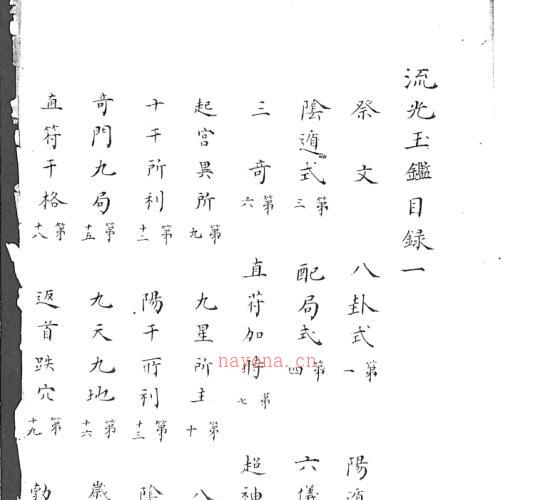 流光玉鑑目録一
祭文 八卦式第一 陽遁
陰遁式第三 配局式第四 六儀
三奇第六 直符加時第七 超神
起宫異所第九 九星所主第十 八
十干所利第十二 陽干所利第十三 陰
奇門九局第十五 九天九地第十六 歲
直符干格第十八 返首跌穴第十九 勃
nayona.cn